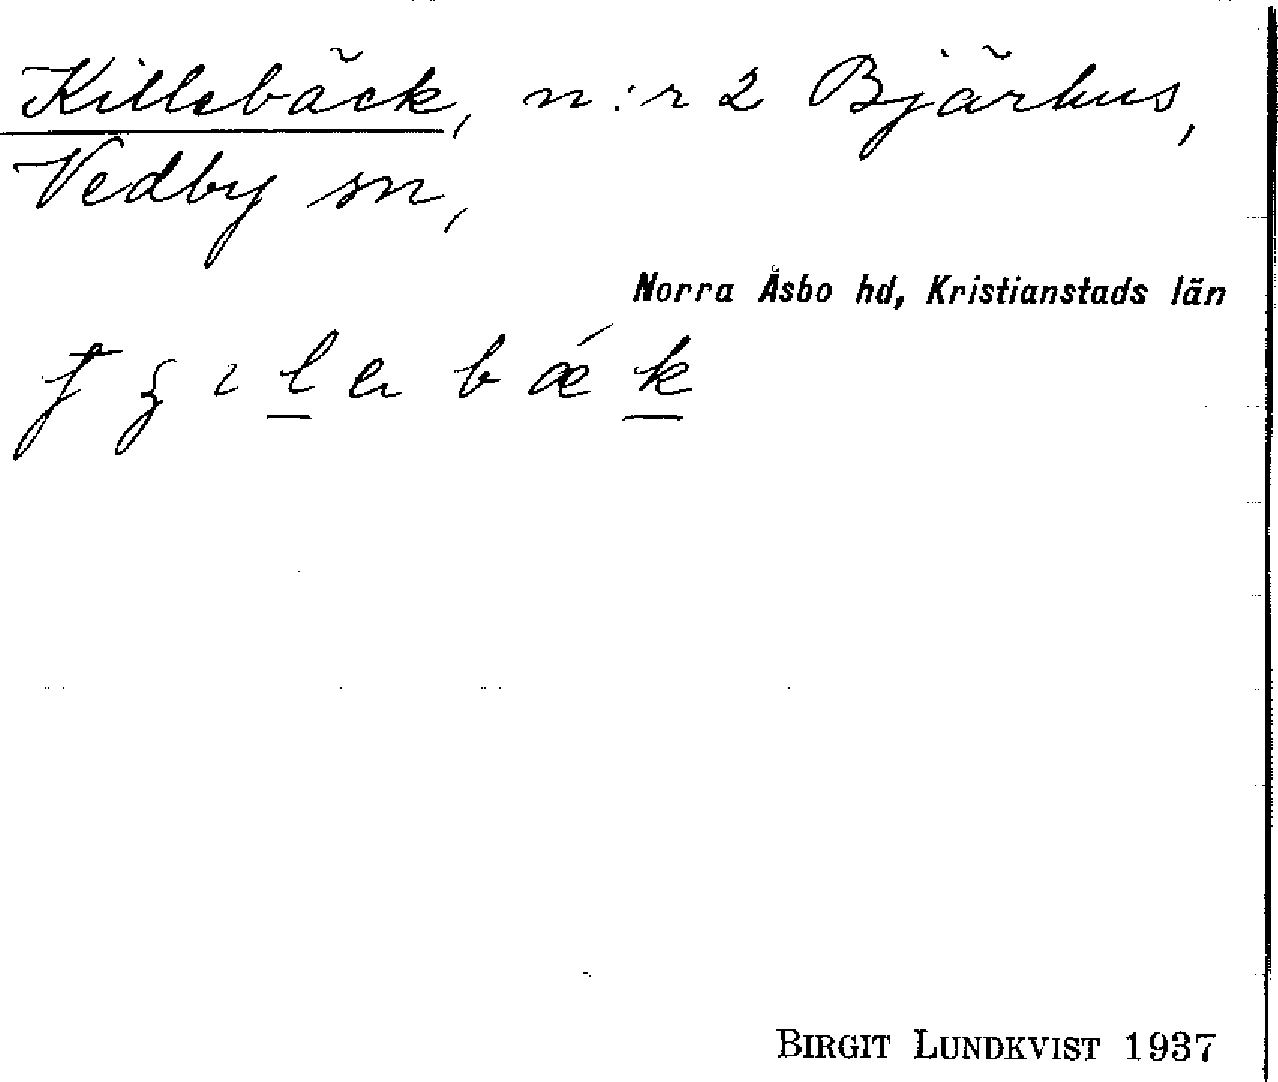 Killebäck, n:r 2 Bjärhus,
Vedby sn,
Norra Åsbo hd, Kristianstads län
BIRGIT LUNDKVIST 1937